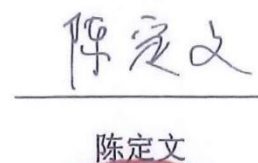 陈定文
陈定文